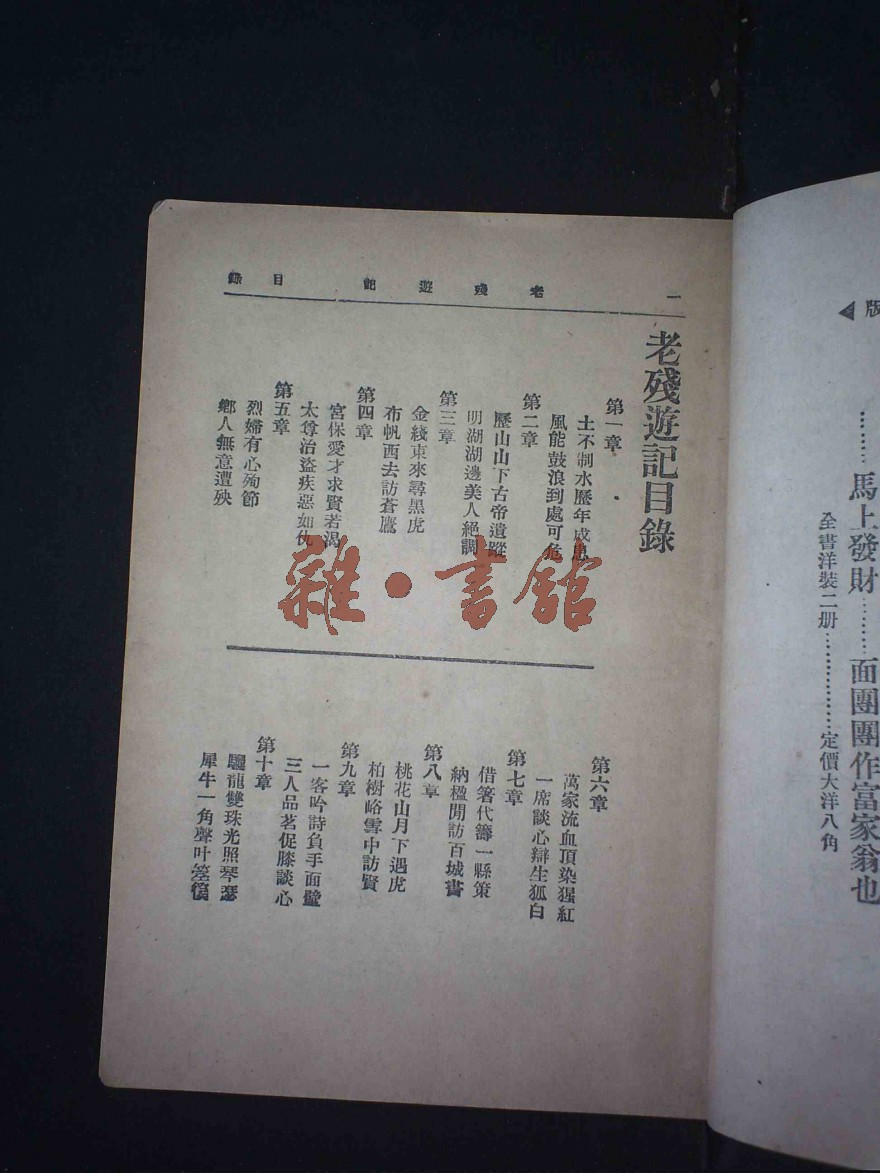 老殘遊記目錄
一
老殘遊記目錄
第一章
土不制水歷年成患
風能鼓浪到處可危
第二章
歷山山下古帝遺蹤
明湖湖邊美人絕調
第三章
金綫東來尋黑虎
布帆西去訪蒼鷹
第四章
宮保愛才求賢若渴
太尊治盜疾惡如仇
第五章
烈婦有心殉節
鄉人無意遭殃
第六章
萬家流血頂染猩紅
一席談心辯生狐白
第七章
借箸代籌一縣策
納楹閒訪百城書
第八章
桃花山月下遇虎
柏樹峪雪中訪賢
第九章
一客吟詩負手面壁
三人品茗促膝談心
第十章
驪龍雙珠光照琴瑟
犀牛一角聲叶箜篌
雜·書館
版
………馬上發財………面團團作富家翁也
全書洋裝二册………………定價大洋八角